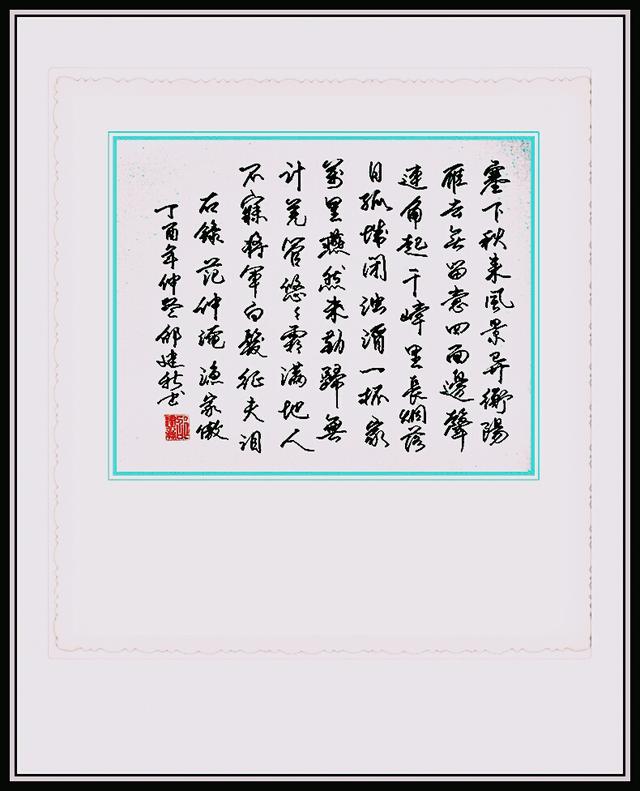 塞下秋来風景异衡陽
雁去無留意四面邊聲
連角起千嶂里長烟落
日孤城閉浊酒一杯家
萬里燕然未勒歸無
計羌管悠々霜滿地人
不寐將軍白髮征夫泪
右錄范仲淹漁家傲
丁酉年仲建秋书